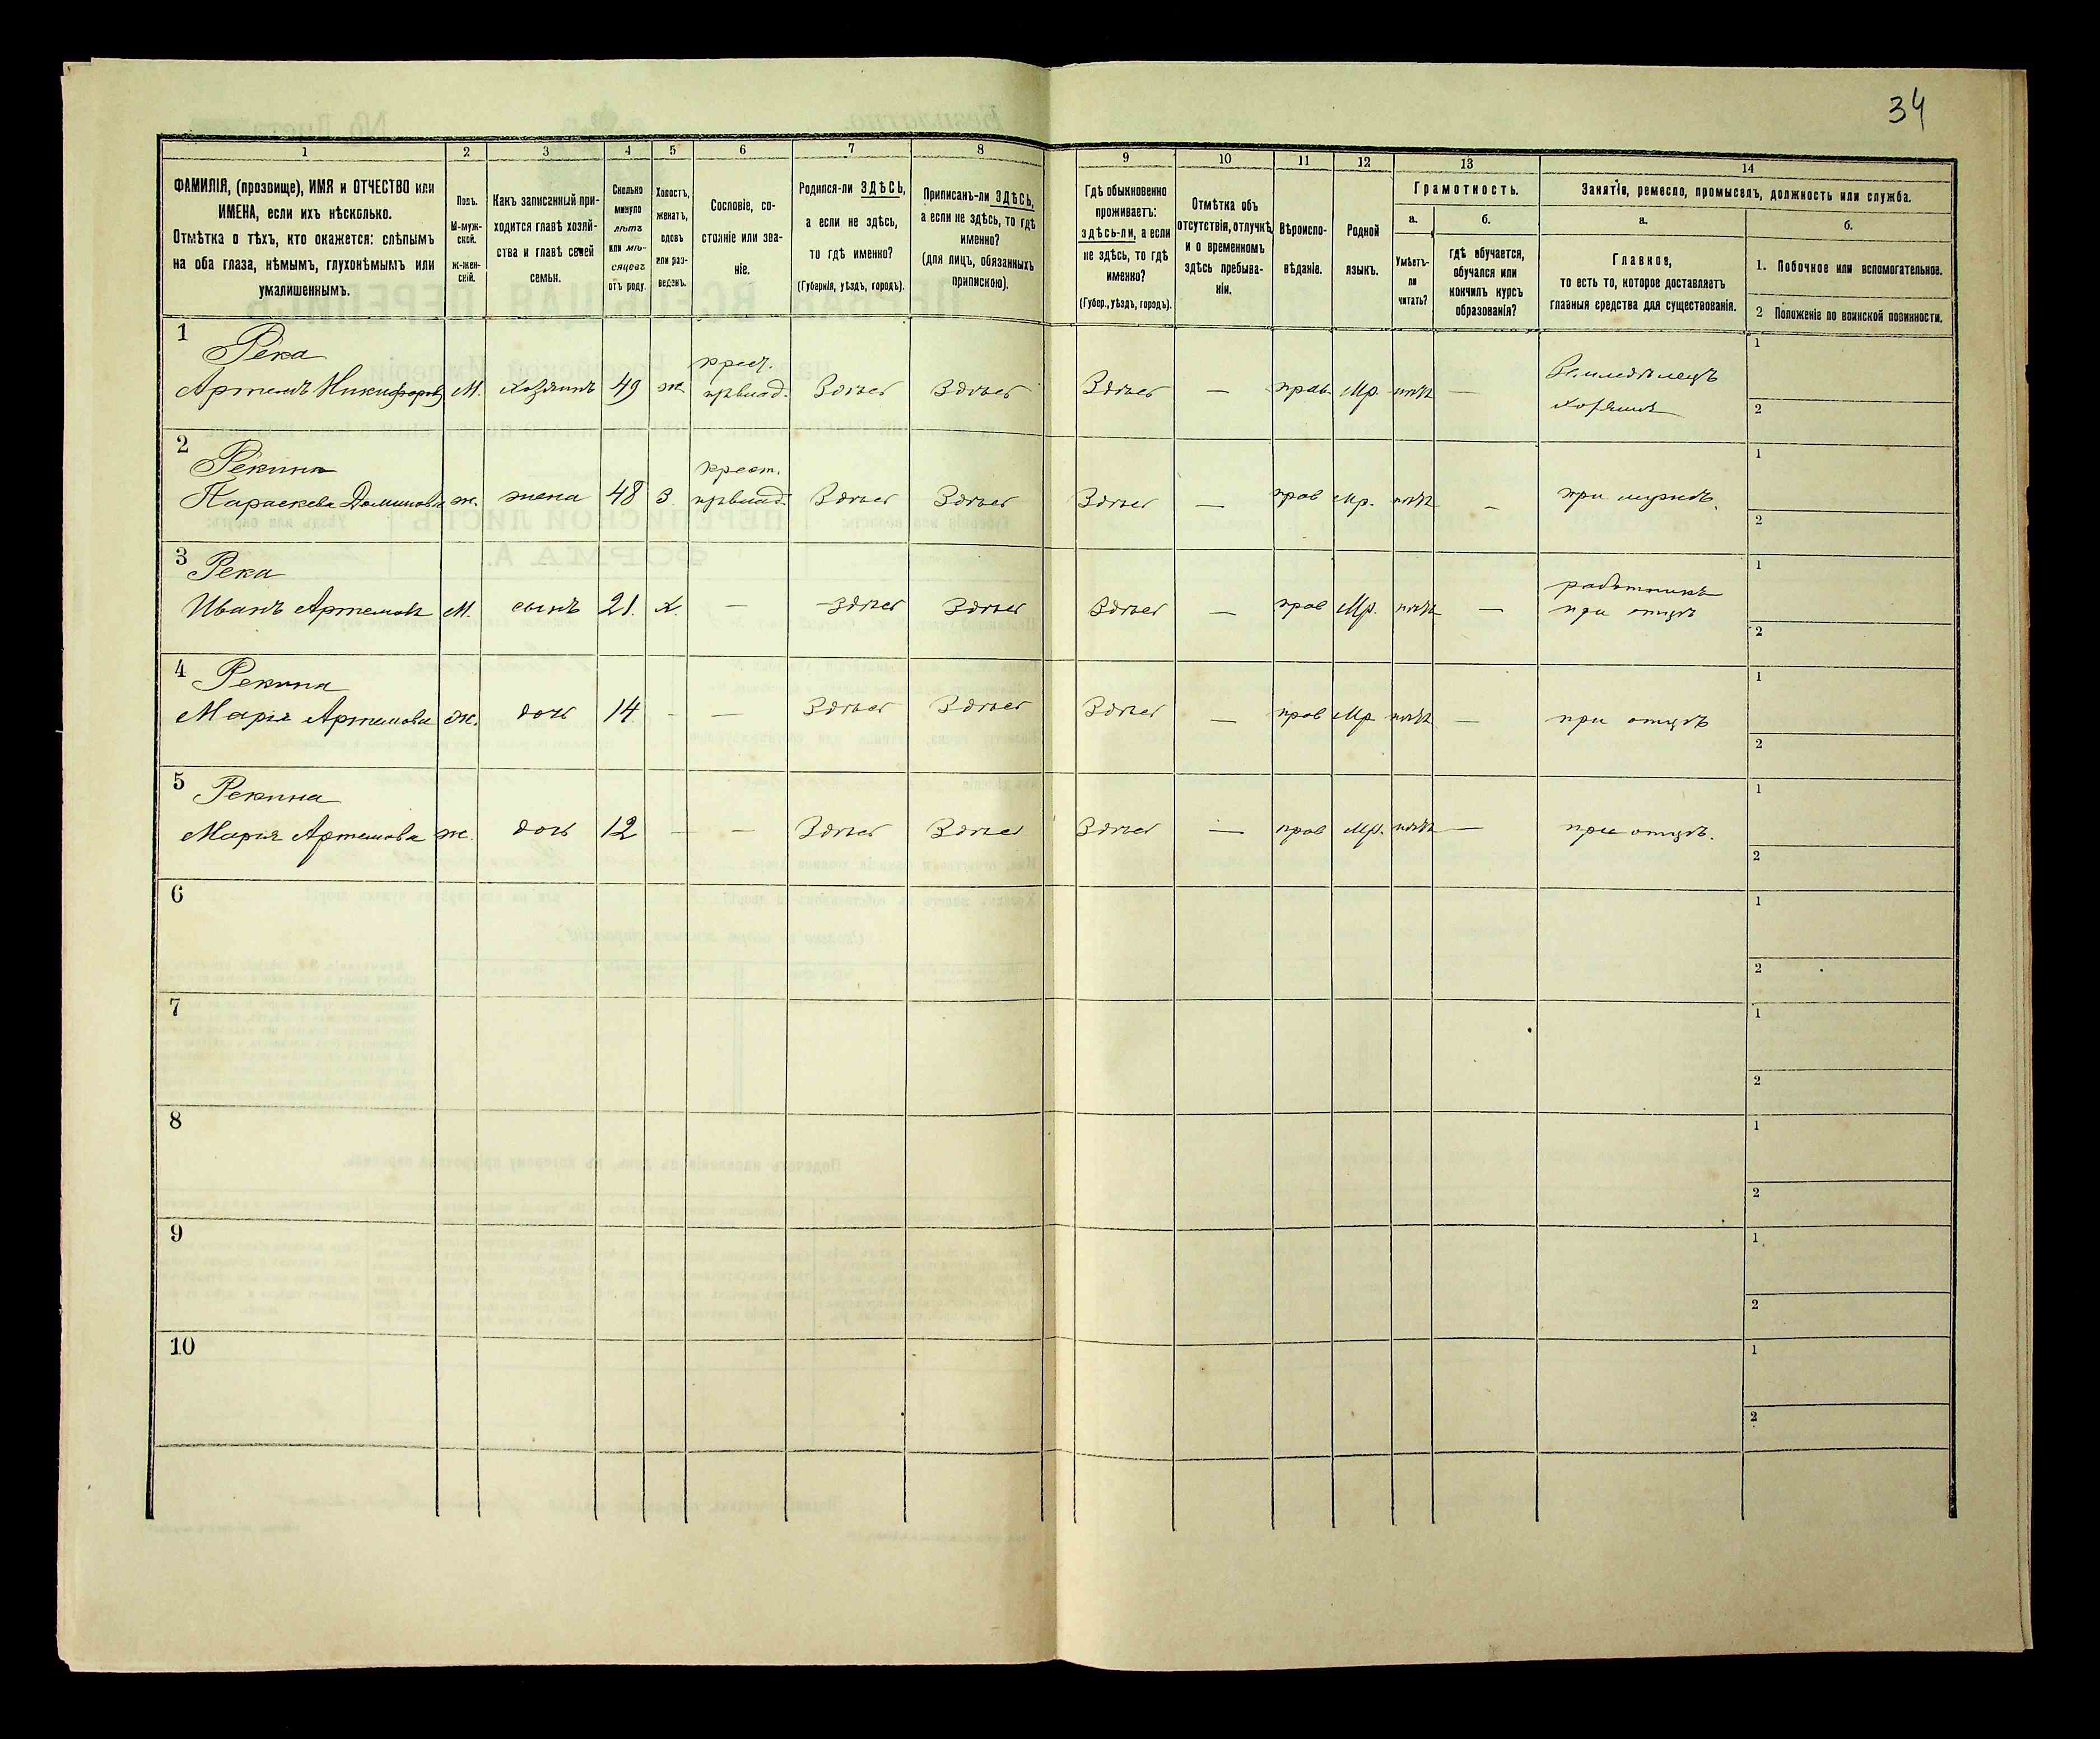 34
1
2
3
4
5
6
7
8
9
10
11
12
13
14
ФАМИЛІЯ, (прозвище), ИМЯ и ОТЧЕСТВО или
ИМЕНА, если ихъ нѣсколько.
Отмѣтка о тѣхъ, кто окажется: слѣпымъ
на оба глаза, нѣмымъ, глухонѣмымъ или
умалишеннымъ.
Полъ.
М-муж-
ской.
ж-жен-
скій.
Какъ записанный при-
ходится главѣ хозяй-
ства и главѣ своей
семьи.
Сколько
минуло
лѣтъ
или мѣ-
сяцевъ
отъ роду.
Холостъ,
женатъ,
вдовъ
или раз-
веденъ.
Сословіе, со-
стояніе или зва-
ніе.
Родился-ли ЗДѢСЬ,
а если не здѣсь,
то гдѣ именно?
(Губернія, уѣздъ, городъ).
Приписанъ-ли ЗДѢСЬ,
а если не здѣсь, то гдѣ
именно?
(для лицъ, обязанныхъ
припискою).
Гдѣ обыкновенно
проживаетъ:
здѣсь-ли, а если
не здѣсь, то гдѣ
именно?
(Губер., уѣздъ, городъ).
Отмѣтка объ
отсутствіи, отлучкѣ,
и о временномъ
здѣсь пребыва-
ніи.
Вѣроиспо-
вѣданіе.
Родной
языкъ.
Грамотность.
а.
Умѣетъ-
ли
читать?
б.
гдѣ обучается,
обучался или
кончилъ курсъ
образованія?
Занятіе, ремесло, промыселъ, должность или служба.
а.
Главное,
то есть то, которое доставляетъ
главныя средства для существованія.
б.
1. Побочное или вспомогательное.
2 Положеніе по воинской повинности.
1
Река
крест.
Земледѣлецъ
1
Артемъ Никифоровъ М. хозяинъ 49 ж. Здѣсь Здѣсь Здѣсь — прав. Мр. нѣтъ —
хозяинъ
2
2
Рекина
крест.
1
Параскева ж. жена 48 З. Здѣсь Здѣсь Здѣсь — прав Мр. нѣтъ — при мужѣ.
2
3
Река
работникъ
1
Иванъ Артемовъ М. сынъ 21. х. — Здѣсь Здѣсь Здѣсь — прав Мр. нѣтъ — при отцѣ
2
4
Рекина
1
Марія Артемова ж. дочь 14 - — Здѣсь Здѣсь Здѣсь — прав Мр нѣтъ — при отцѣ
2
5
Рекина
1
Марія Артемова ж. дочь 12 — — Здѣсь Здѣсь Здѣсь — прав Мр. нѣтъ — при отцѣ.
2
6
1
2
7
1
2
8
1
2
9
1
2
10
1
2